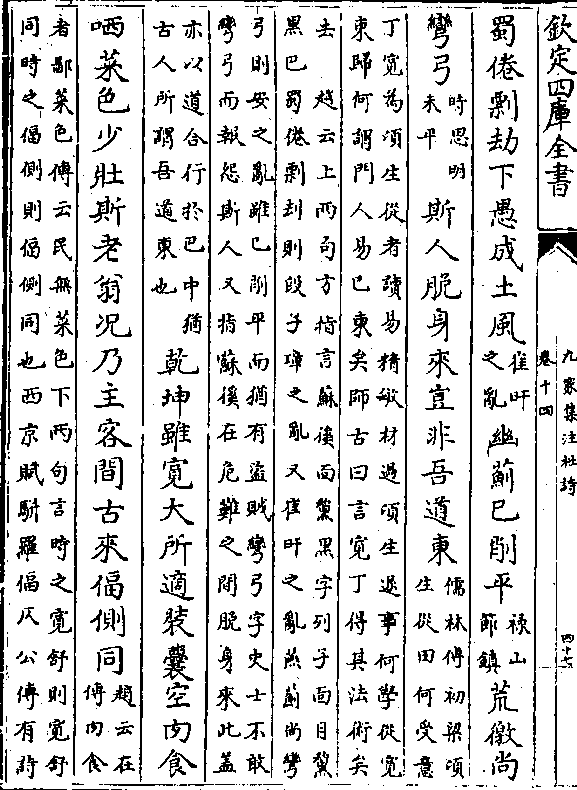 欽定四庫全書
蜀倦剽劫下愚成土風崔旰之亂幽薊已削平祿山節鎮荒徼尚
彎弓時思明未平斯人脫身來豈非吾道東儒林傳初梁項生從田何受意
丁寬為項生從者讀易精敏材過項生遂事何學從寬
東歸何謂門人易已東矣師古曰言寬丁得其法術矣
去 趙云上兩句方指言蘇徯面黧黑字列子面目黧
黑巴蜀倦剽刼則段子璋之亂又崔旰之亂燕薊尚彎
弓則安之亂雖已削平而猶有盜賊彎弓字史士不敢
彎弓而報怨斯人又指蘇徯在危難之間脫身來此蓋
亦以道合行於巴中猶古人所謂吾道東也乾坤雖寬大所適裝囊空肉食
哂菜色少壯斯老翁况乃主客間古來偪側同趙云在傳肉食
者鄙菜色傳云民無菜色下兩句言時之寬舒則寬舒
同時之偪側則偪側同也西京賦駢羅偪仄公傳有詩
九家集注杜詩
卷十四